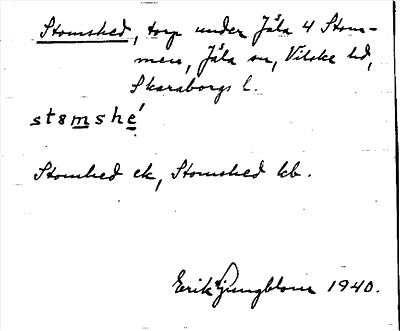 Stomshed, torp under Jäla 4 Stom-
men, Jäla sn, Vilske hd,
Skaraborgs l.
stømshé
Stomhed ek, Stomshed kb.
Erik Ljungblom 1940.